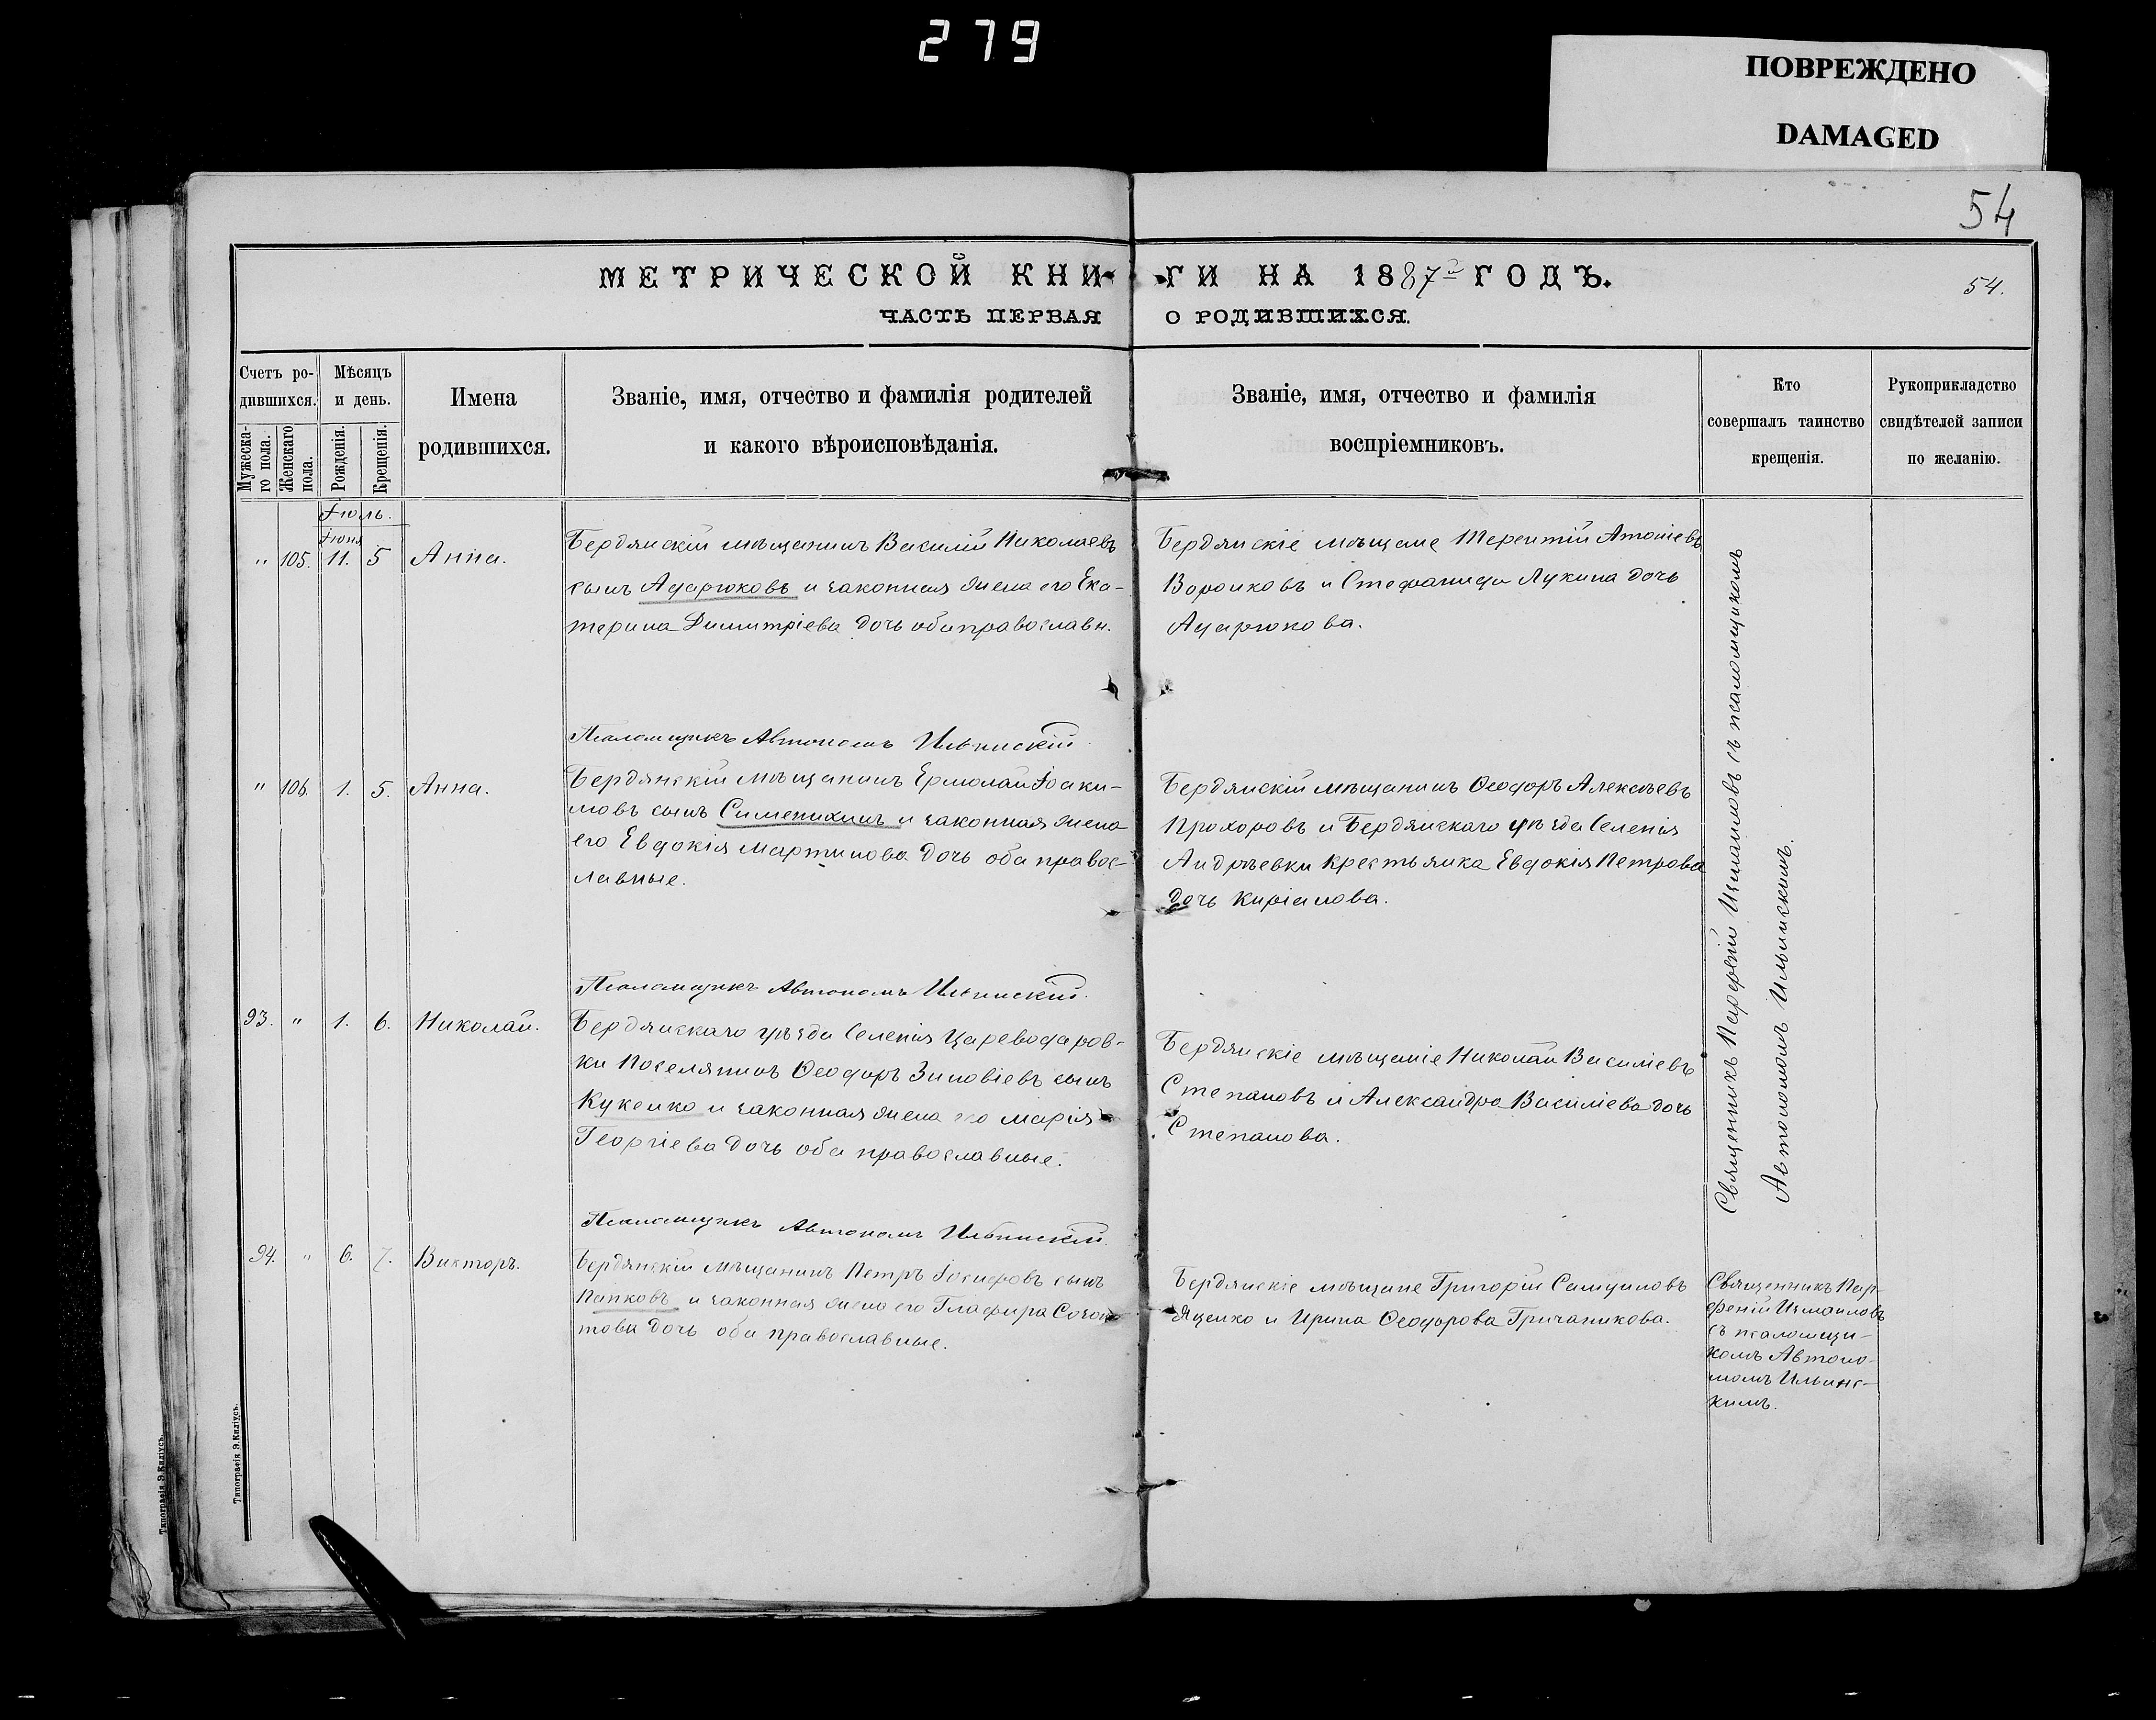 279
ПОВРЕЖДЕНО
DAMAGED
54
МЕТРИЧЕСКОЙ КНИГИ НА 1887й ГОДЪ.
54.
ЧАСТЬ ПЕРВАЯ О РОДИВШИХСЯ.
Счетъ ро-
дившихся.
Мужеска-
го пола.
Женскаго
пола.
Мѣсяцъ
и день.
Рожденія.
Крещенія.
Имена
родившихся.
Званіе, имя, отчество и фамилія родителей
и какого вѣроисповѣданія.
Званіе, имя, отчество и фамилія
воспріемниковъ.
Кто
совершалъ таинство
крещенія.
Рукоприкладство
свидѣтелей записи
по желанію.
Іюль.
Іюня
" 105. 11. 5 Анна.
Бердянскій мѣщанинъ Василій Николаевъ
сынъ Адарюковъ и законная жена его Ека-
терина Димитріева дочь оба православн.
Бердянскіе мѣщане Терентій Атоніевъ
Воронковъ и Стефанида Лукина дочь
Адарюкова.
Псаломщикъ Автономъ Ильинскій.
" 106. 1. 5. Анна.
Бердянскій мѣщанинъ Ермолай Іоаки-
мовъ сынъ Сименихинъ и законная жена
его Евдокія Мартинова дочь оба правос-
лавные.
Бердянскій мѣщанинъ Ѳеодоръ Алексѣевъ
Прохоровъ и Бердянскаго уѣзда Селенія
Андрѣевки крестьянка Евдокія Петрова
дочь Киріанова.
Псаломщикъ Автономъ Ильинскій.
93. " 1. 6. Николай.
Бердянскаго уѣзда Селенія Цареводаров-
ки Поселянинъ Ѳеодоръ Зиновіевъ сынъ
Кукенко и законная жена его Марія
Георгіева дочь оба православные.
Бердянскіе мѣщаніе Николай Василіевъ
Степановъ и Александра Василіева дочь
Степанова.
Псаломщикъ Автономъ Ильинскій.
94. " 6. 7. Викторъ.
Бердянскій мѣщанинъ Петръ Іосифовъ сынъ
Папковъ и законная жена его Глафира
това дочь оба православные.
Бердянскіе мѣщане Григорій Самуиловъ
Яценко и Ирина Ѳеодорова Гричаникова.
Священникъ Парфеній Измаиловъ съ псаломщикомъ
Автономомъ Ильинскимъ.
Священникъ Пар-
феній Измаиловъ
съ псаломщи-
комъ Автоно-
момъ Ильинс-
кимъ.
Типографія Э. Киліусъ.
Типографія Э. Киліусъ.